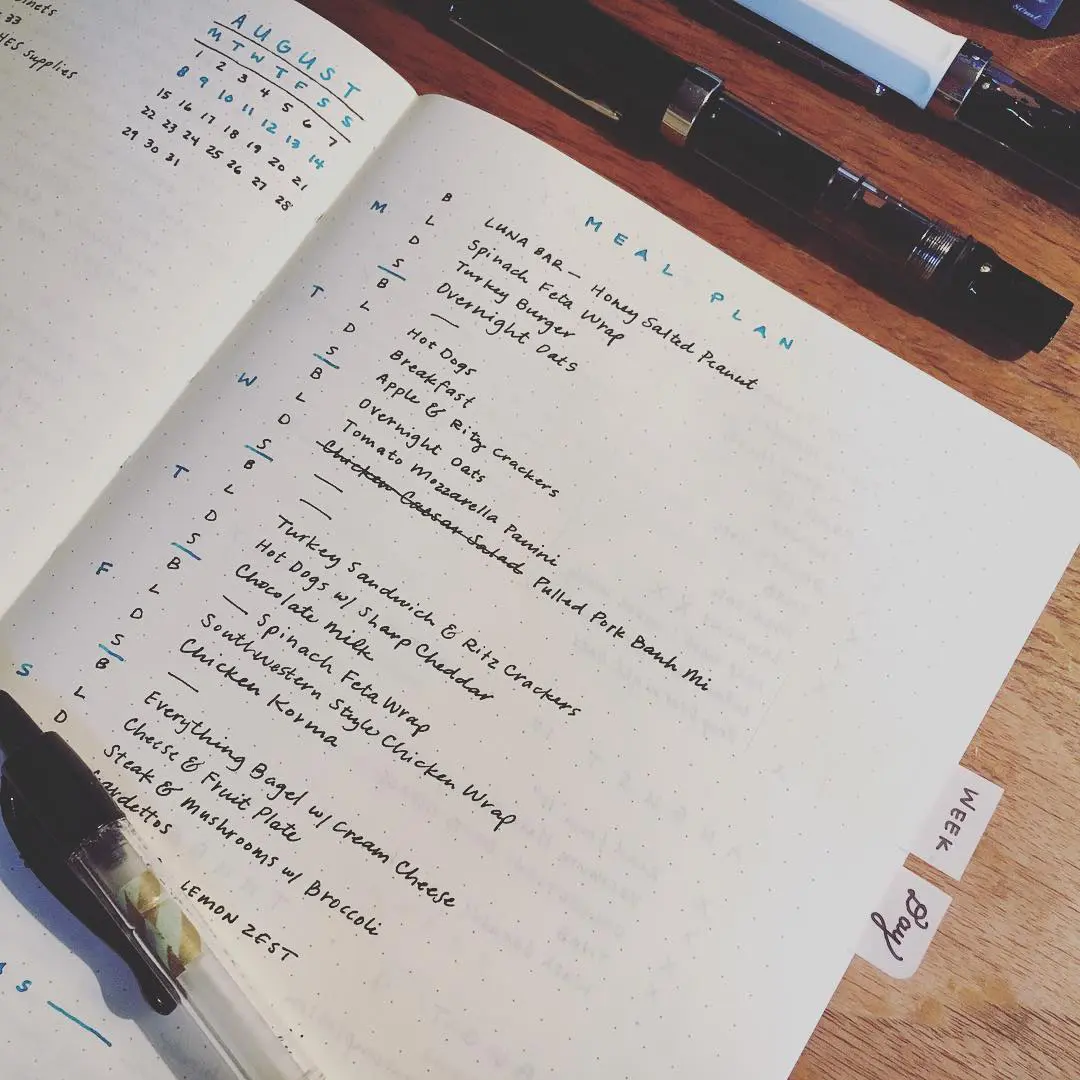 33
HES Supplies
AUGUST
M T W T F S S
1 2 3 4 5 6 7
8 9 10 11 12 13 14
15 16 17 18 19 20 21
22 23 24 25 26 27 28
29 30 31
MEAL PLAN
M B LUNA BAR — Honey Salted Peanut
L Spinach Feta Wrap
D Turkey Burger
S Overnight Oats
T B —
L Hot Dogs
D Breakfast
S Apple & Ritz Crackers
W B Overnight Oats
L Tomato Mozzarella Panini
D Chicken Caesar Salad Pulled Pork Banh Mi
S —
T B —
L Turkey Sandwich & Ritz Crackers
D Hot Dogs w/ Sharp Cheddar
S Chocolate Milk
F B — Spinach Feta Wrap
L Southwestern Style Chicken Wrap
D Chicken Korma
S —
S B Everything Bagel w/ Cream Cheese
L Cheese & Fruit Plate
D Steak & Mushrooms w/ Broccoli
LEMON ZEST
WEEK
Day